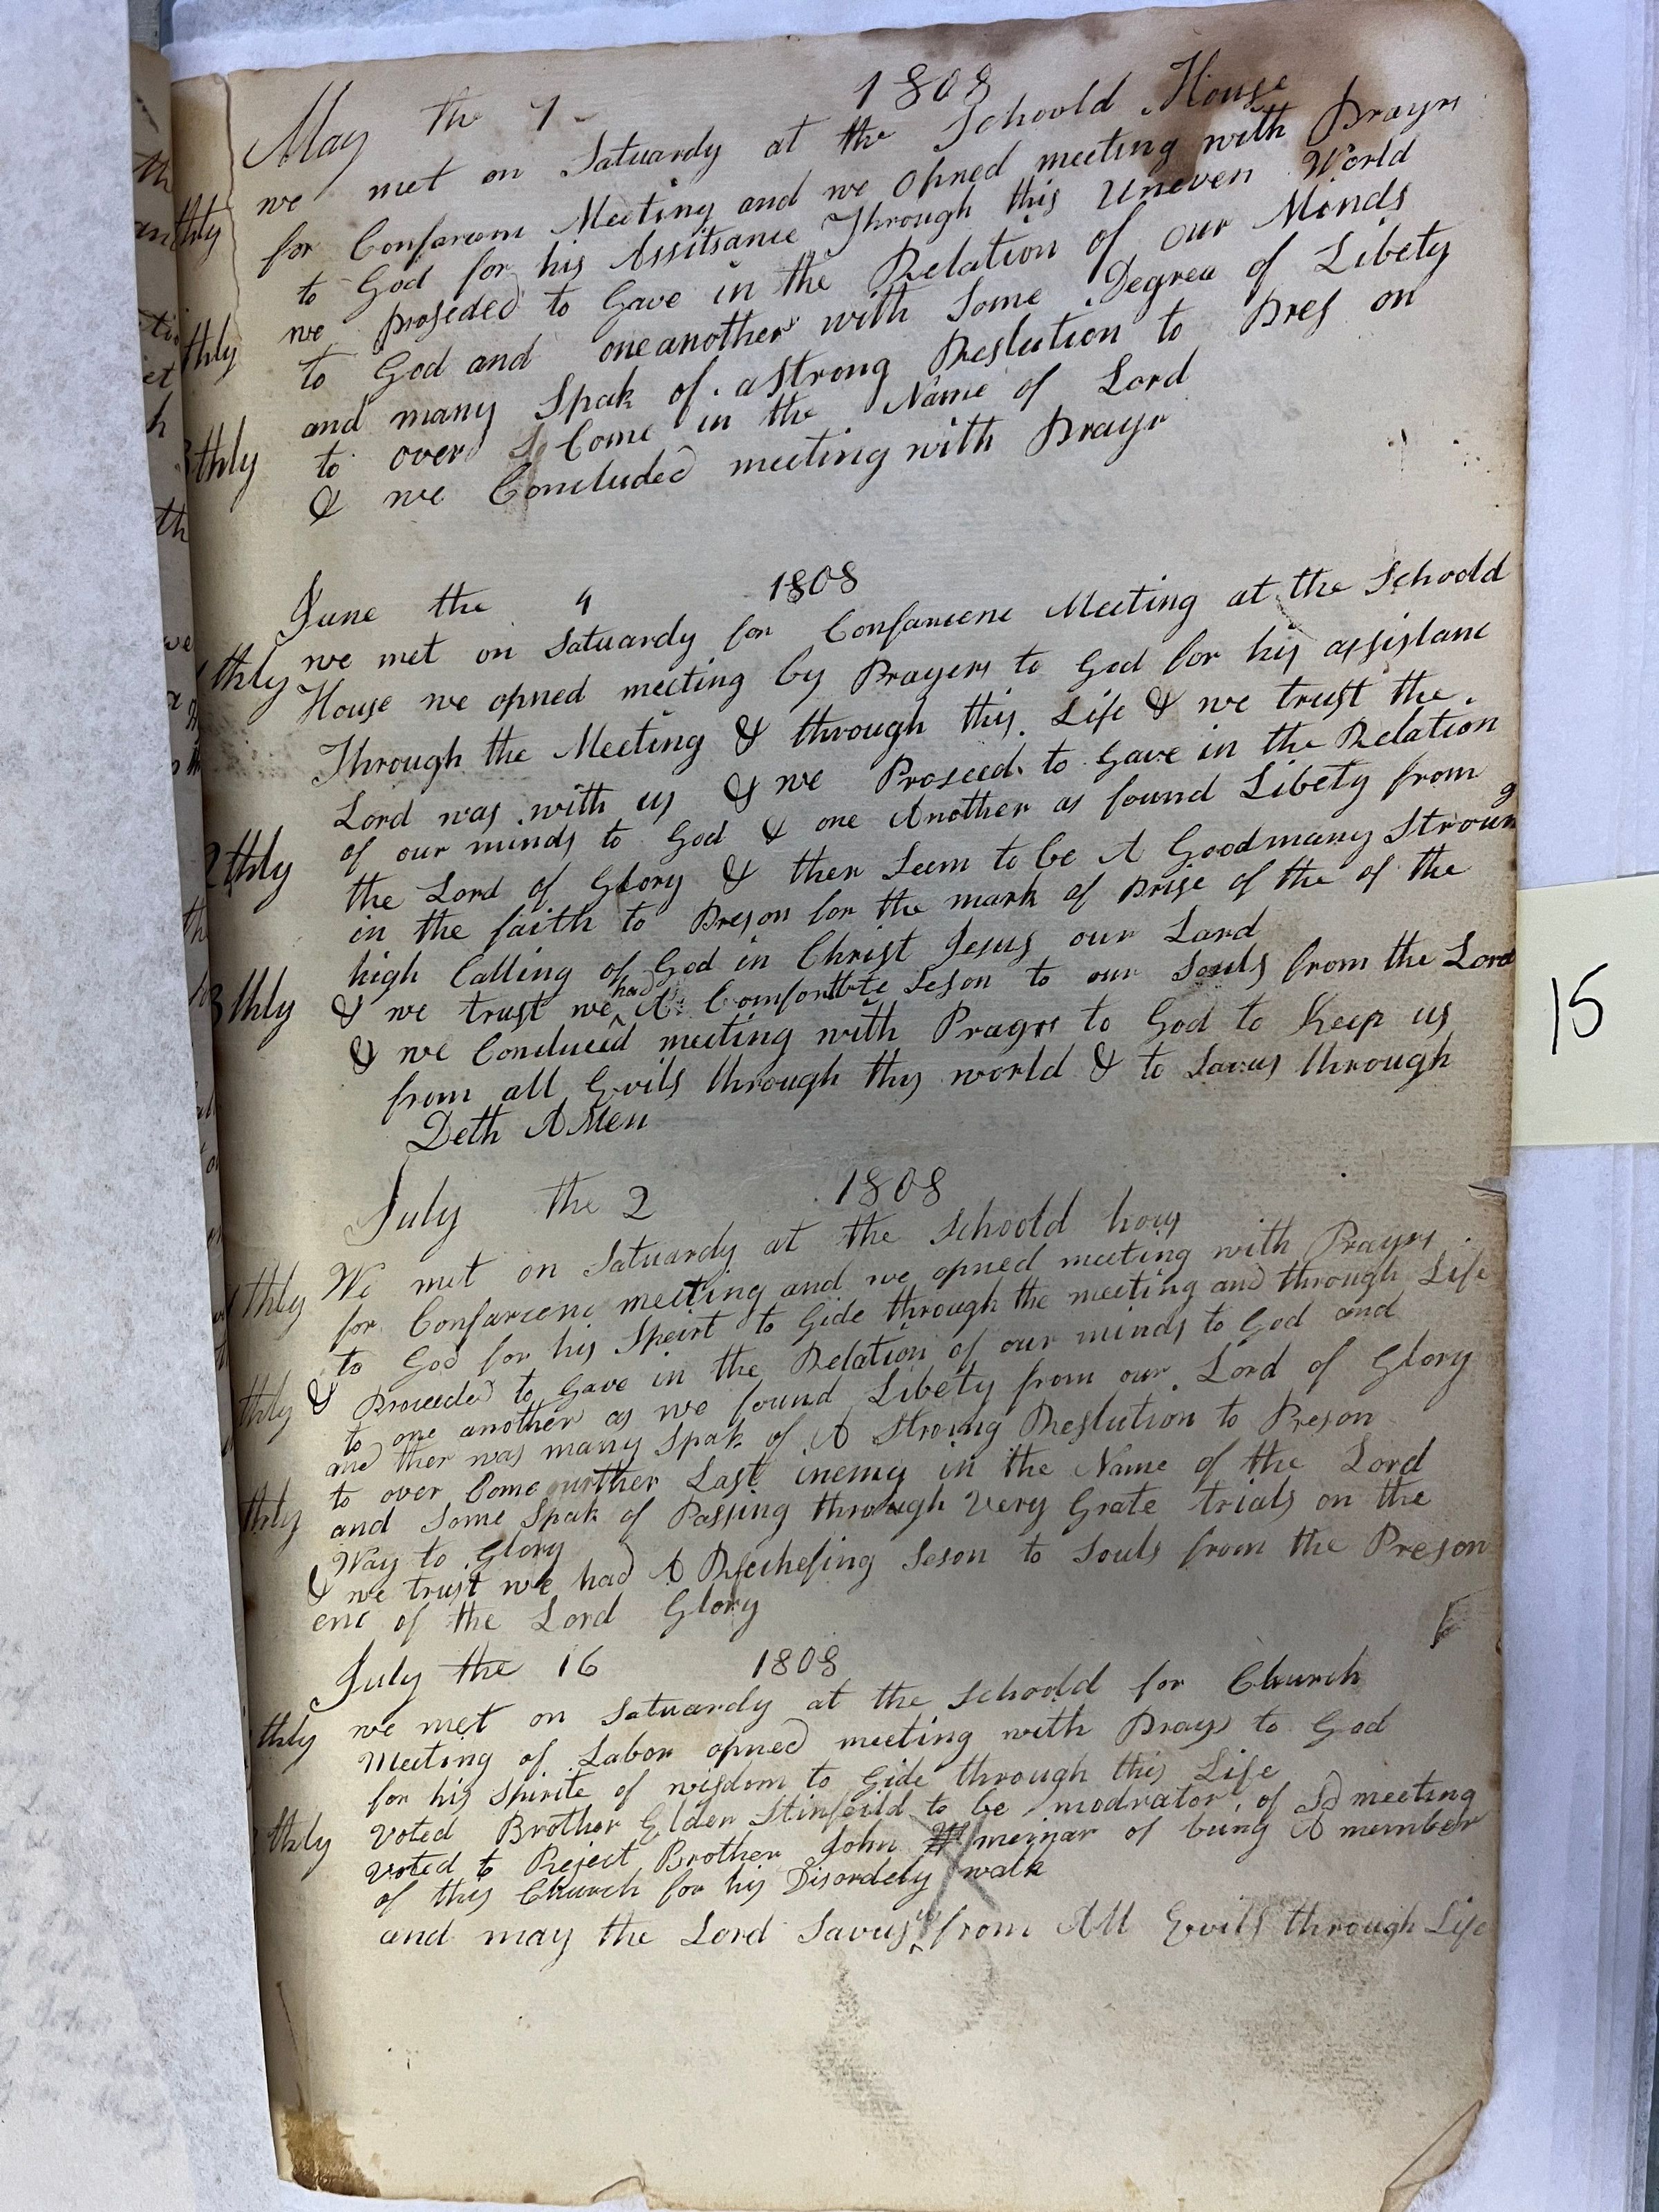 May the 7 1808
thly we met on Satuardy at the Schoold House
for Confarenc Meeting and we opned meeting with Prayrs
to God for his Assitsance Through this Uneven World
thly we proseded to Gave in the Relation of our Minds
to God and oneanother with Some Degree of Libety
and many Spak of a Strong Reslution to Pres on
to over Come in the Name of Lord
3thly & we Concluded meeting with Prayr
June the 4 1808
thly we met on Satuardy for Confarcenc Meeting at the Schoold
House we opned meeting by Prayers to God for his assistanc
Through the Meeting & through this Life & we trust the
Lord was with us & we Proseed to Gave in the Relation
2thly of our minds to God & one Another as found Libety from
the Lord of Glory & ther Seem to be A Goodmany Stroung
in the faith to Preson for the mark of Prise of the of the
high Calling of God in Christ Jesus our Lard
3thly & we trust we had A Comfortbte Seson to our Souls from the Lord
& we Conduced meeting with Prayrs to God to Keep us
from all Evils through this world & to Savus through
Deth AMen
July the 2 1808
thly We met on Satuardy at the Schoold hous
for Confarcenc meeting and we opned meeting with Prayrs
to God for his Speirt to Gide through the meeting and through Life
thly & Proceeded to Gave in the Relation of our minds to God and
to one another as we found Libety from our Lord of Glory
and ther was many Spak of A Stroing Reslution to Preson
to over Come further Last inemy in the Name of the Lord
thly and Some Spak of Passing through Very Grate trials on the
Way to Glory
& we trust we had A Refechesing Seson to Souls from the Preson
enc of the Lord Glory
July the 16 1808
thly we met on Satuardy at the Schoold for Church
Meeting of Labor opned meeting with Prays to God
for his Spirite of wisdom to Gide through this Life
thly Voted Brother Elder Stinfeild to be modrator of Sd meeting
Voted to Reject Brother John meinar of being A member
of this Church for his Disordely walk
and may the Lord Savus us from All Evils through Life
15